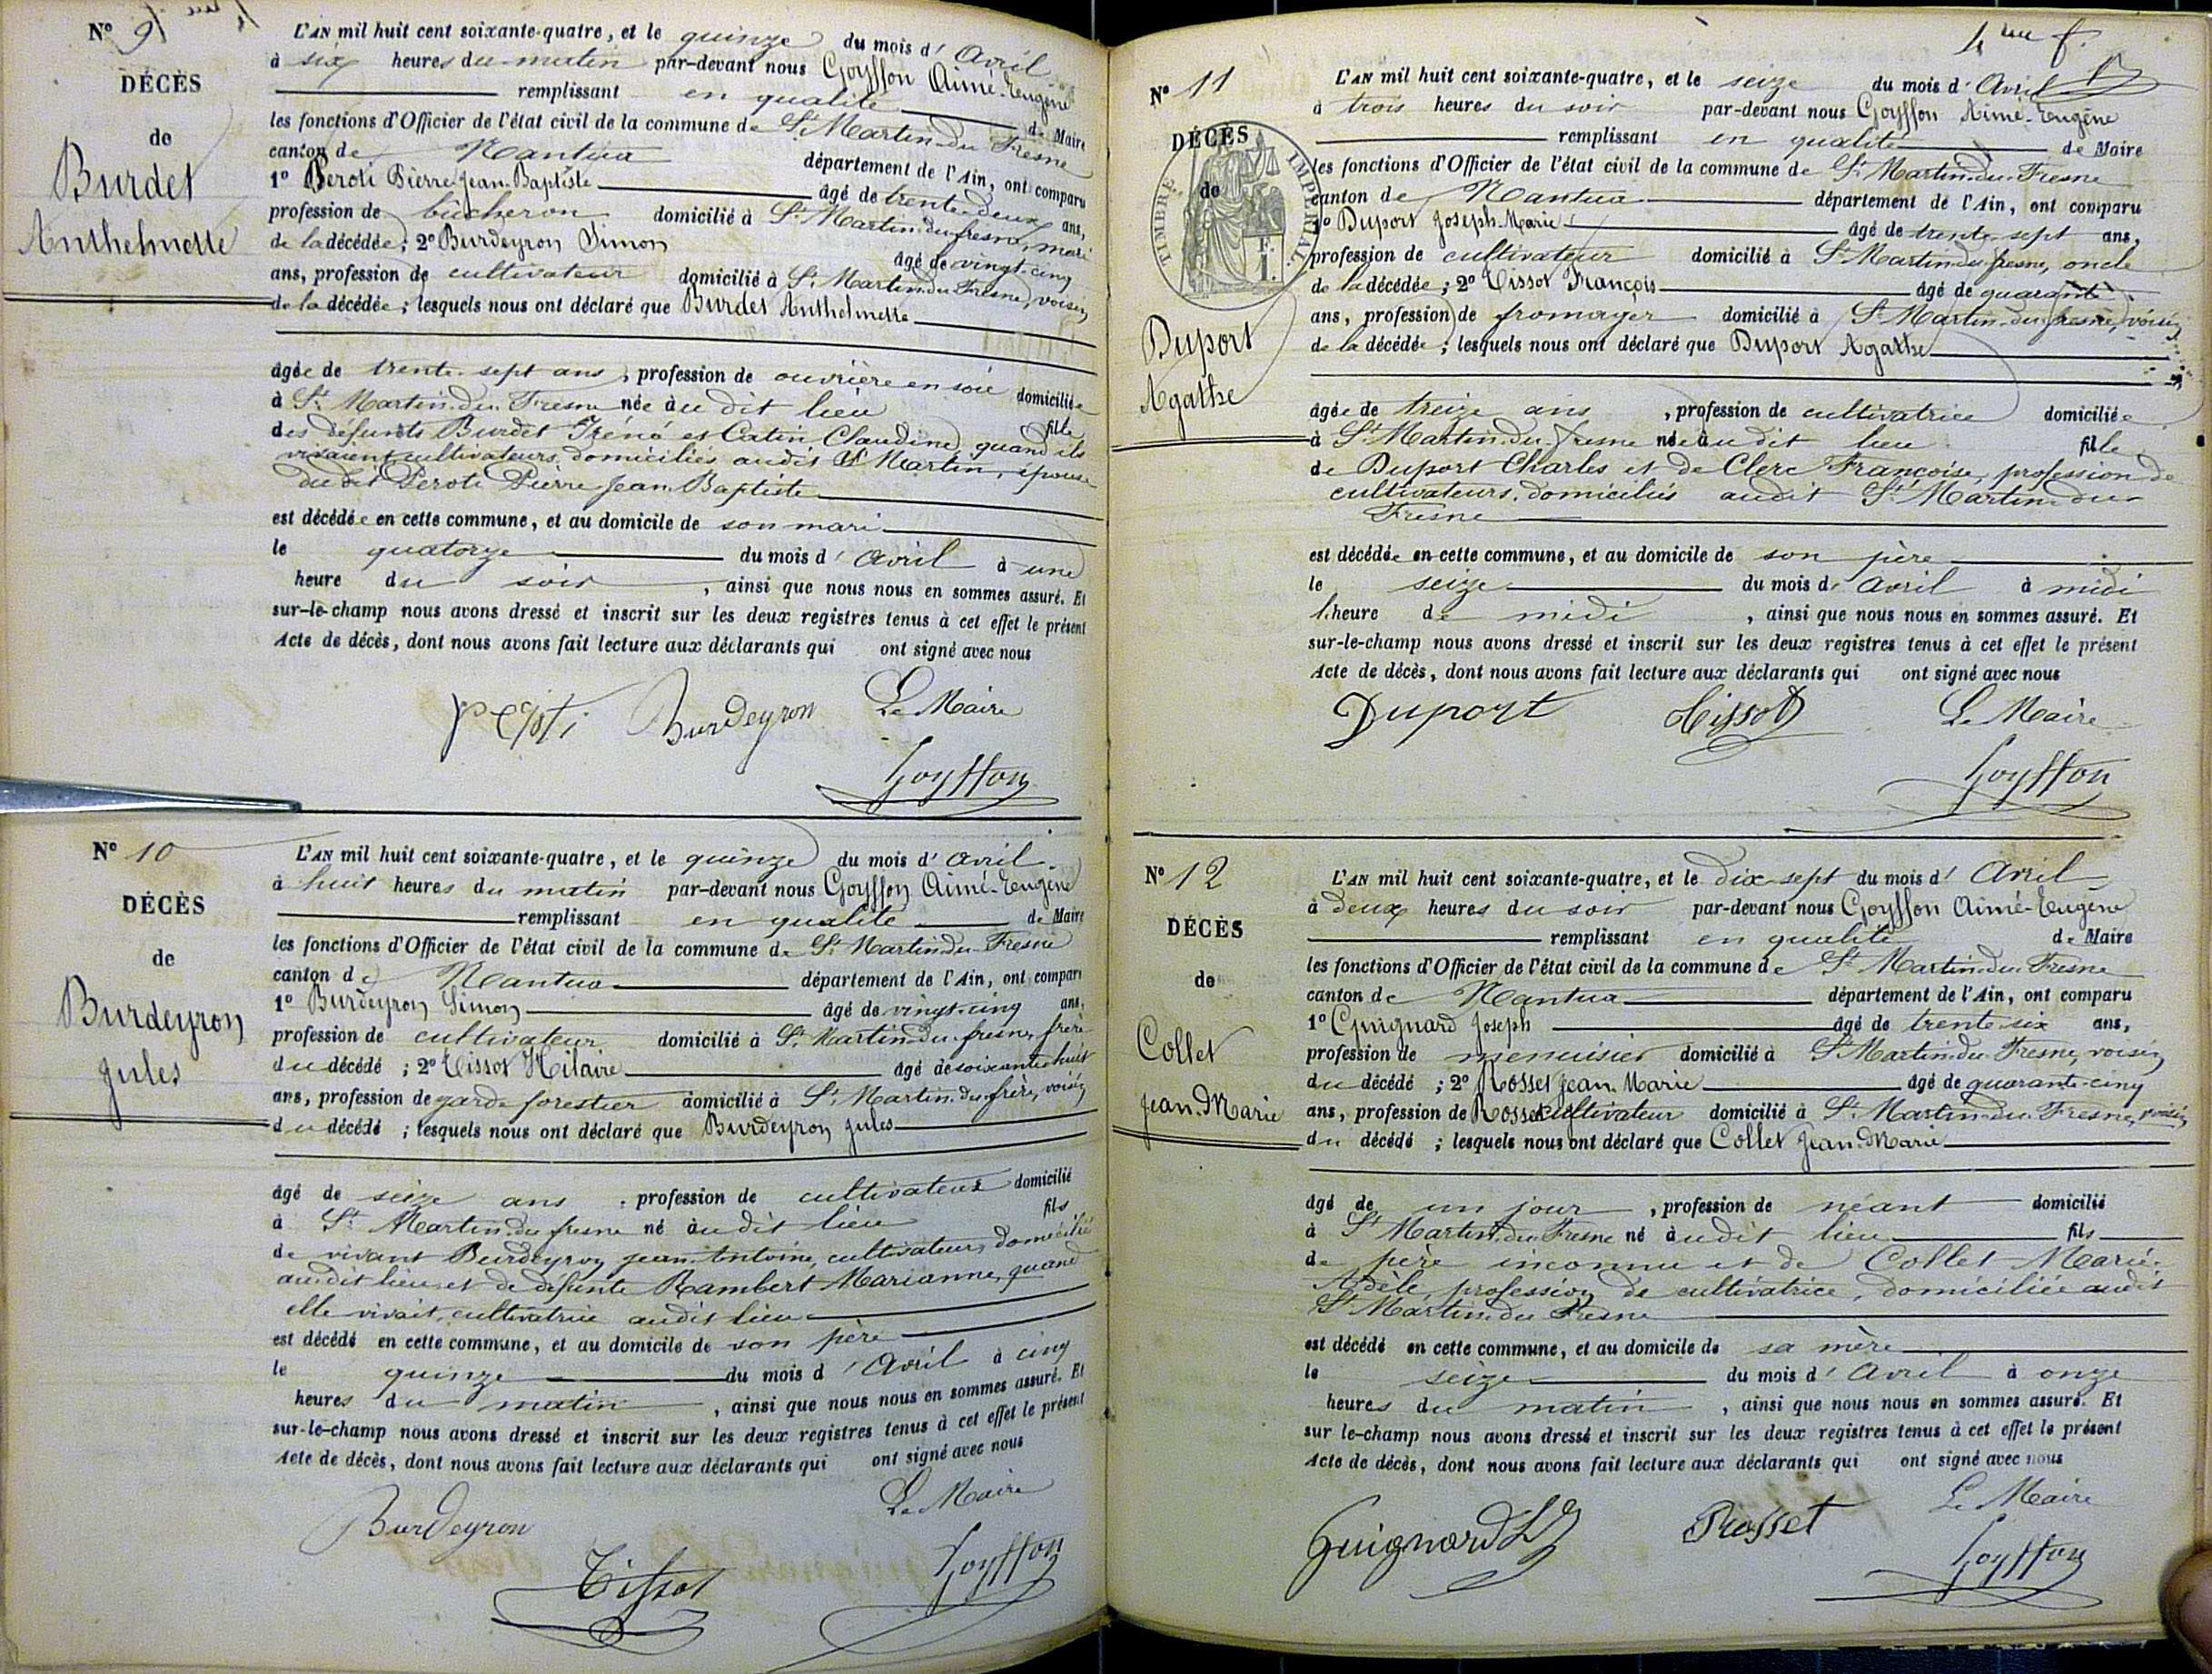 N° 9
DÉCÈS
de
Burdet
Anthelmette
L'AN mil huit cent soixante-quatre, et le quinze du mois d'Avril
à six heures du matin par-devant nous Goyffon Aimé-Eugène
remplissant en qualité de Maire
les fonctions d'Officier de l'état civil de la commune de St Martin-du-Fresne
canton de Nantua département de l'Ain, ont comparu
1° Peroti Pierre Jean-Baptiste âgé de trente-deux ans,
profession de bûcheron domicilié à St Martin-du-fresne, mari
de la décédée; 2° Burdeyron Simon âgé de vingt-cinq
ans, profession de cultivateur domicilié à St Martin-du-Fresne, voisin
de la décédée; lesquels nous ont déclaré que Burdet Anthelmette
âgée de trente-sept ans, profession de ouvrière en soie domiciliée
à St Martin-du-Fresne née àudit lieu fille
des défunts Burdet Iréné et Catin Claudine, quand ils
vivaient cultivateurs, domiciliés audit St Martin, épouse
du dit Peroti Pierre Jean-Baptiste
est décédée en cette commune, et au domicile de son mari
le quatorze du mois d'Avril à une
heure du soir, ainsi que nous nous en sommes assuré. Et
sur-le-champ nous avons dressé et inscrit sur les deux registres tenus à cet effet le présent
Acte de décès, dont nous avons fait lecture aux déclarants qui ont signé avec nous
Burdeyron Le Maire
Goyffon
N° 10
DÉCÈS
de
Burdeyron
Jules
L'AN mil huit cent soixante-quatre, et le quinze du mois d'Avril
à huit heures du matin par-devant nous Goyffon Aimé-Eugène
remplissant en qualité de Maire
les fonctions d'Officier de l'état civil de la commune de St Martin-du-Fresne
canton de Nantua département de l'Ain, ont comparu
1° Burdeyron Simon âgé de vingt-cinq ans,
profession de cultivateur domicilié à St Martin-du-fresne, frère
du décédé; 2° Tissot Hilaire âgé de soixante-huit
ans, profession de garde forestier domicilié à St Martin-du-frêne, voisin
du décédé; lesquels nous ont déclaré que Burdeyron Jules
âgé de seize ans, profession de cultivateur domicilié
à St Martin-du-fresne né àudit lieu fils
de vivant Burdeyron Jean-Antoine, cultivateur, domicilié
audit lieu et de défunte Rambert Marianne, quand
elle vivait, cultivatrice audit lieu
est décédé en cette commune, et au domicile de son père
le quinze du mois d'Avril à cinq
heures du matin, ainsi que nous nous en sommes assuré. Et
sur-le-champ nous avons dressé et inscrit sur les deux registres tenus à cet effet le présent
Acte de décès, dont nous avons fait lecture aux déclarants qui ont signé avec nous
Le Maire
Burdeyron
Tissot
Goyffon
N° 11
DÉCÈS
de
TIMBRE IMPÉRIAL
1 F.
Duport
Agathe
L'AN mil huit cent soixante-quatre, et le seize du mois d'Avril
à trois heures du soir par-devant nous Goyffon Aimé-Eugène
remplissant en qualité de Maire
les fonctions d'Officier de l'état civil de la commune de St Martin-du-Fresne
canton de Nantua département de l'Ain, ont comparu
1° Duport Joseph-Marie âgé de trente-sept ans,
profession de cultivateur domicilié à St Martin-du-fresne, oncle
de la décédée; 2° Tissot François âgé de quarante
ans, profession de fromager domicilié à St Martin-du-fresne, voisin
de la décédée; lesquels nous ont déclaré que Duport Agathe
âgée de treize ans, profession de cultivatrice domiciliée
à St Martin-du-fresne née àudit lieu fille
de Duport Charles et de Clerc Françoise, profession de
cultivateurs, domiciliés audit St Martin-du-
Fresne
est décédée en cette commune, et au domicile de son père
le seize du mois d'Avril à midi
l'heure de midi, ainsi que nous nous en sommes assuré. Et
sur-le-champ nous avons dressé et inscrit sur les deux registres tenus à cet effet le présent
Acte de décès, dont nous avons fait lecture aux déclarants qui ont signé avec nous
Duport Tissot Le Maire
Goyffon
N° 12
DÉCÈS
de
Collet
Jean-Marie
L'AN mil huit cent soixante-quatre, et le dix-sept du mois d'Avril
à deux heures du soir par-devant nous Goyffon Aimé-Eugène
remplissant en qualité de Maire
les fonctions d'Officier de l'état civil de la commune de St Martin-du-Fresne
canton de Nantua département de l'Ain, ont comparu
1° Guignard Joseph âgé de trente-six ans,
profession de menuisier domicilié à St Martin-du-Fresne, voisin
du décédé; 2° Rosset Jean-Marie âgé de quarante-cinq
ans, profession de Rosset cultivateur domicilié à St Martin-du-Fresne, voisin
du décédé; lesquels nous ont déclaré que Collet Jean-Marie
âgé de un jour, profession de néant domicilié
à St Martin-du-Fresne né àudit lieu fils
de père inconnu et de Collet Marie-
Adèle, profession de cultivatrice, domiciliée audit
St Martin-du-Fresne
est décédé en cette commune, et au domicile de sa mère
le seize du mois d'Avril à onze
heures du matin, ainsi que nous nous en sommes assuré. Et
sur le-champ nous avons dressé et inscrit sur les deux registres tenus à cet effet le présent
Acte de décès, dont nous avons fait lecture aux déclarants qui ont signé avec nous
Guignard Rosset Le Maire
Goyffon